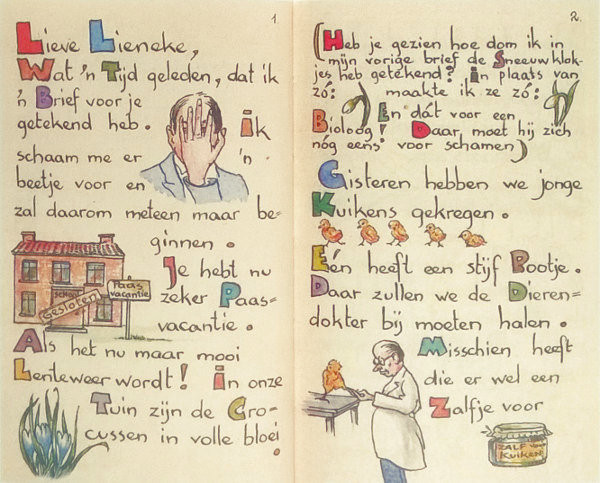 1.
Lieve Lieneke,
Wat 'n Tijd geleden, dat ik
'n Brief voor je
getekend heb. Ik
schaam me er 'n
beetje voor en
zal daarom meteen maar be=
ginnen.
Je hebt nu
zeker Paas=
vacantie.
SCHOOL
GESLOTEN
PAAS
VACANTIE
Als het nu maar mooi
Lenteweer wordt! In onze
Tuin zijn de Cro=
cussen in volle bloei.
2.
(Heb je gezien hoe dom ik in
mijn vorige brief de Sneeuwklok-
jes heb getekend? In plaats van
zó: maakte ik ze zó:
En dát voor een
Bioloog! Daar moet hij zich
nóg eens voor schamen)
Gisteren hebben we jonge
Kuikens gekregen.
Eén heeft een stijf Pootje.
Daar zullen we de Dieren=
dokter bij moeten halen.
Misschien heeft
die er wel een
Zalfje voor
ZALF voor
Kuikens